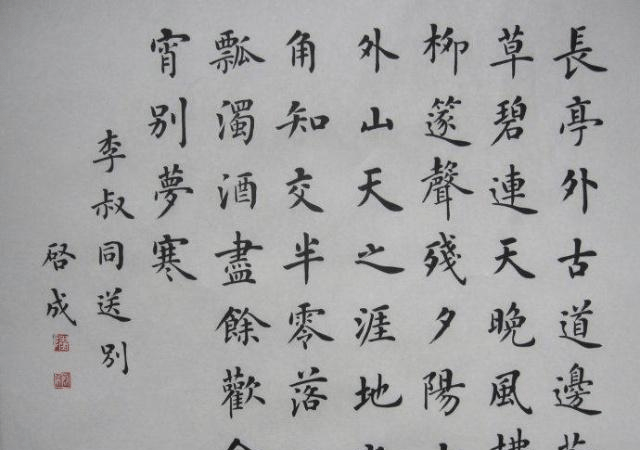 長亭外古道邊
草碧連天晚風拂
柳篴聲殘夕陽
外山天之涯地
角知交半零落
瓢濁酒盡餘歡今
宵別夢寒
李叔同送別
啓成